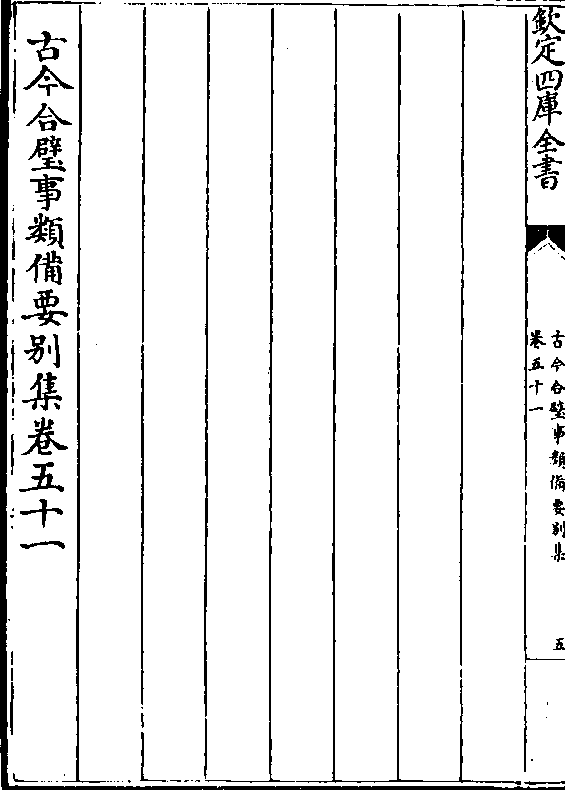 欽定四庫全書
古今合璧事類備要別集
卷五十一
五
古今合璧事類備要别集卷五十一